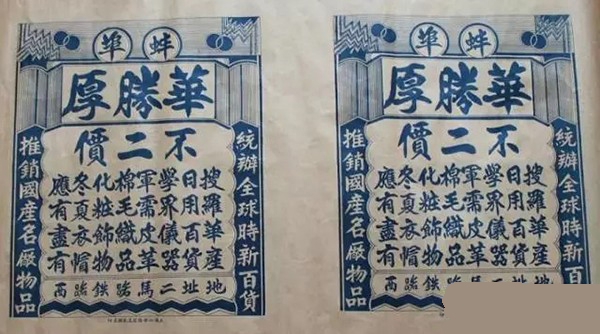 蚌埠
華勝厚
不二價
統辦全球時新百貨
搜羅華產
日用百貨
學界儀器
軍需皮革
棉毛織品
化粧飾物
冬夏衣帽
應有盡有
推銷國產名廠物品
地址二馬路鉄路西
蚌埠
華勝厚
不二價
統辦全球時新百貨
搜羅華產
日用百貨
學界儀器
軍需皮革
棉毛織品
化粧飾物
冬夏衣帽
應有盡有
推銷國產名廠物品
地址二馬路鉄路西